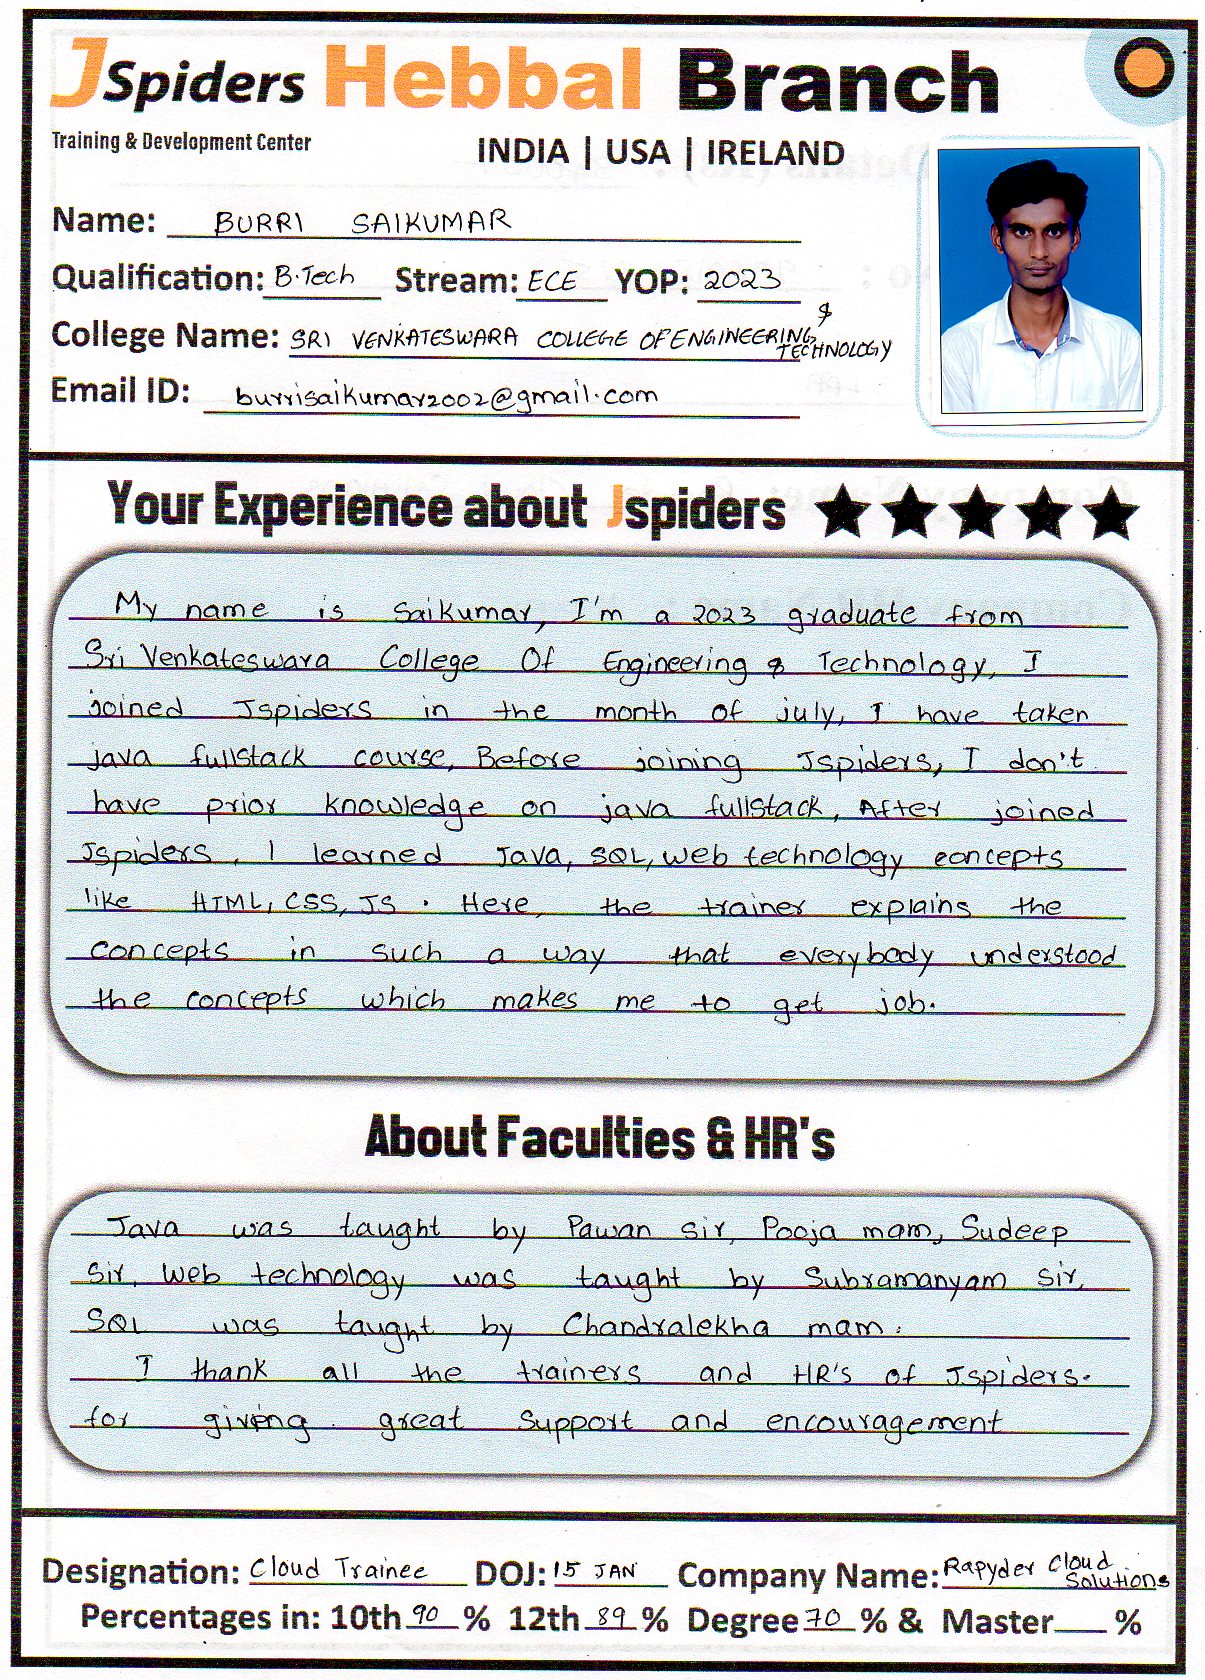 JSpiders Hebbal Branch
Training & Development Center
INDIA | USA | IRELAND
Name: BURRI SAIKUMAR
Qualification: B.Tech Stream: ECE YOP: 2023
College Name: SRI VENKATESWARA COLLEGE OF ENGINEERING &
TECHNOLOGY
Email ID: burrisaikumar2002@gmail.com
Your Experience about Jspiders
My name is Saikumar, I'm a 2023 graduate from
Sri Venkateswara College Of Engineering & Technology, I
joined Jspiders in the month of july, I have taken
java fullstack course, Before joining Jspiders, I don't
have prior knowledge on java fullstack, After joined
Jspiders, I learned Java, SQL, web technology concepts
like HTML, CSS, JS. Here, the trainer explains the
concepts in such a way that everybody understood
the concepts which makes me to get job.
About Faculties & HR's
Java was taught by Pawan sir, Pooja mam, Sudeep
Sir, web technology was taught by Subramanyam sir,
SQL was taught by Chandralekha mam.
I thank all the trainers and HR's of Jspiders.
for giving great support and encouragement
Designation: Cloud Trainee DOJ: 15 JAN Company Name: Rapyder Cloud
Solutions
Percentages in: 10th 90 % 12th 89 % Degree 70 % & Master %